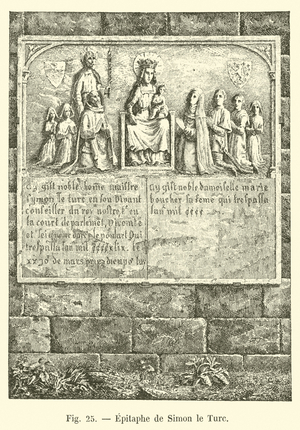 Cy gist noble home maistre
symon le turc en son vivant
conseiller du roy nostre en
la court de parlemēt, viconte
et seigneur
trespassa lan mil cccc le
de mars
cy gist noble damoiselle marie
boucher sa feme qui trespassa
lan mil cccc
Fig. 25. — Épitaphe de Simon le Turc.